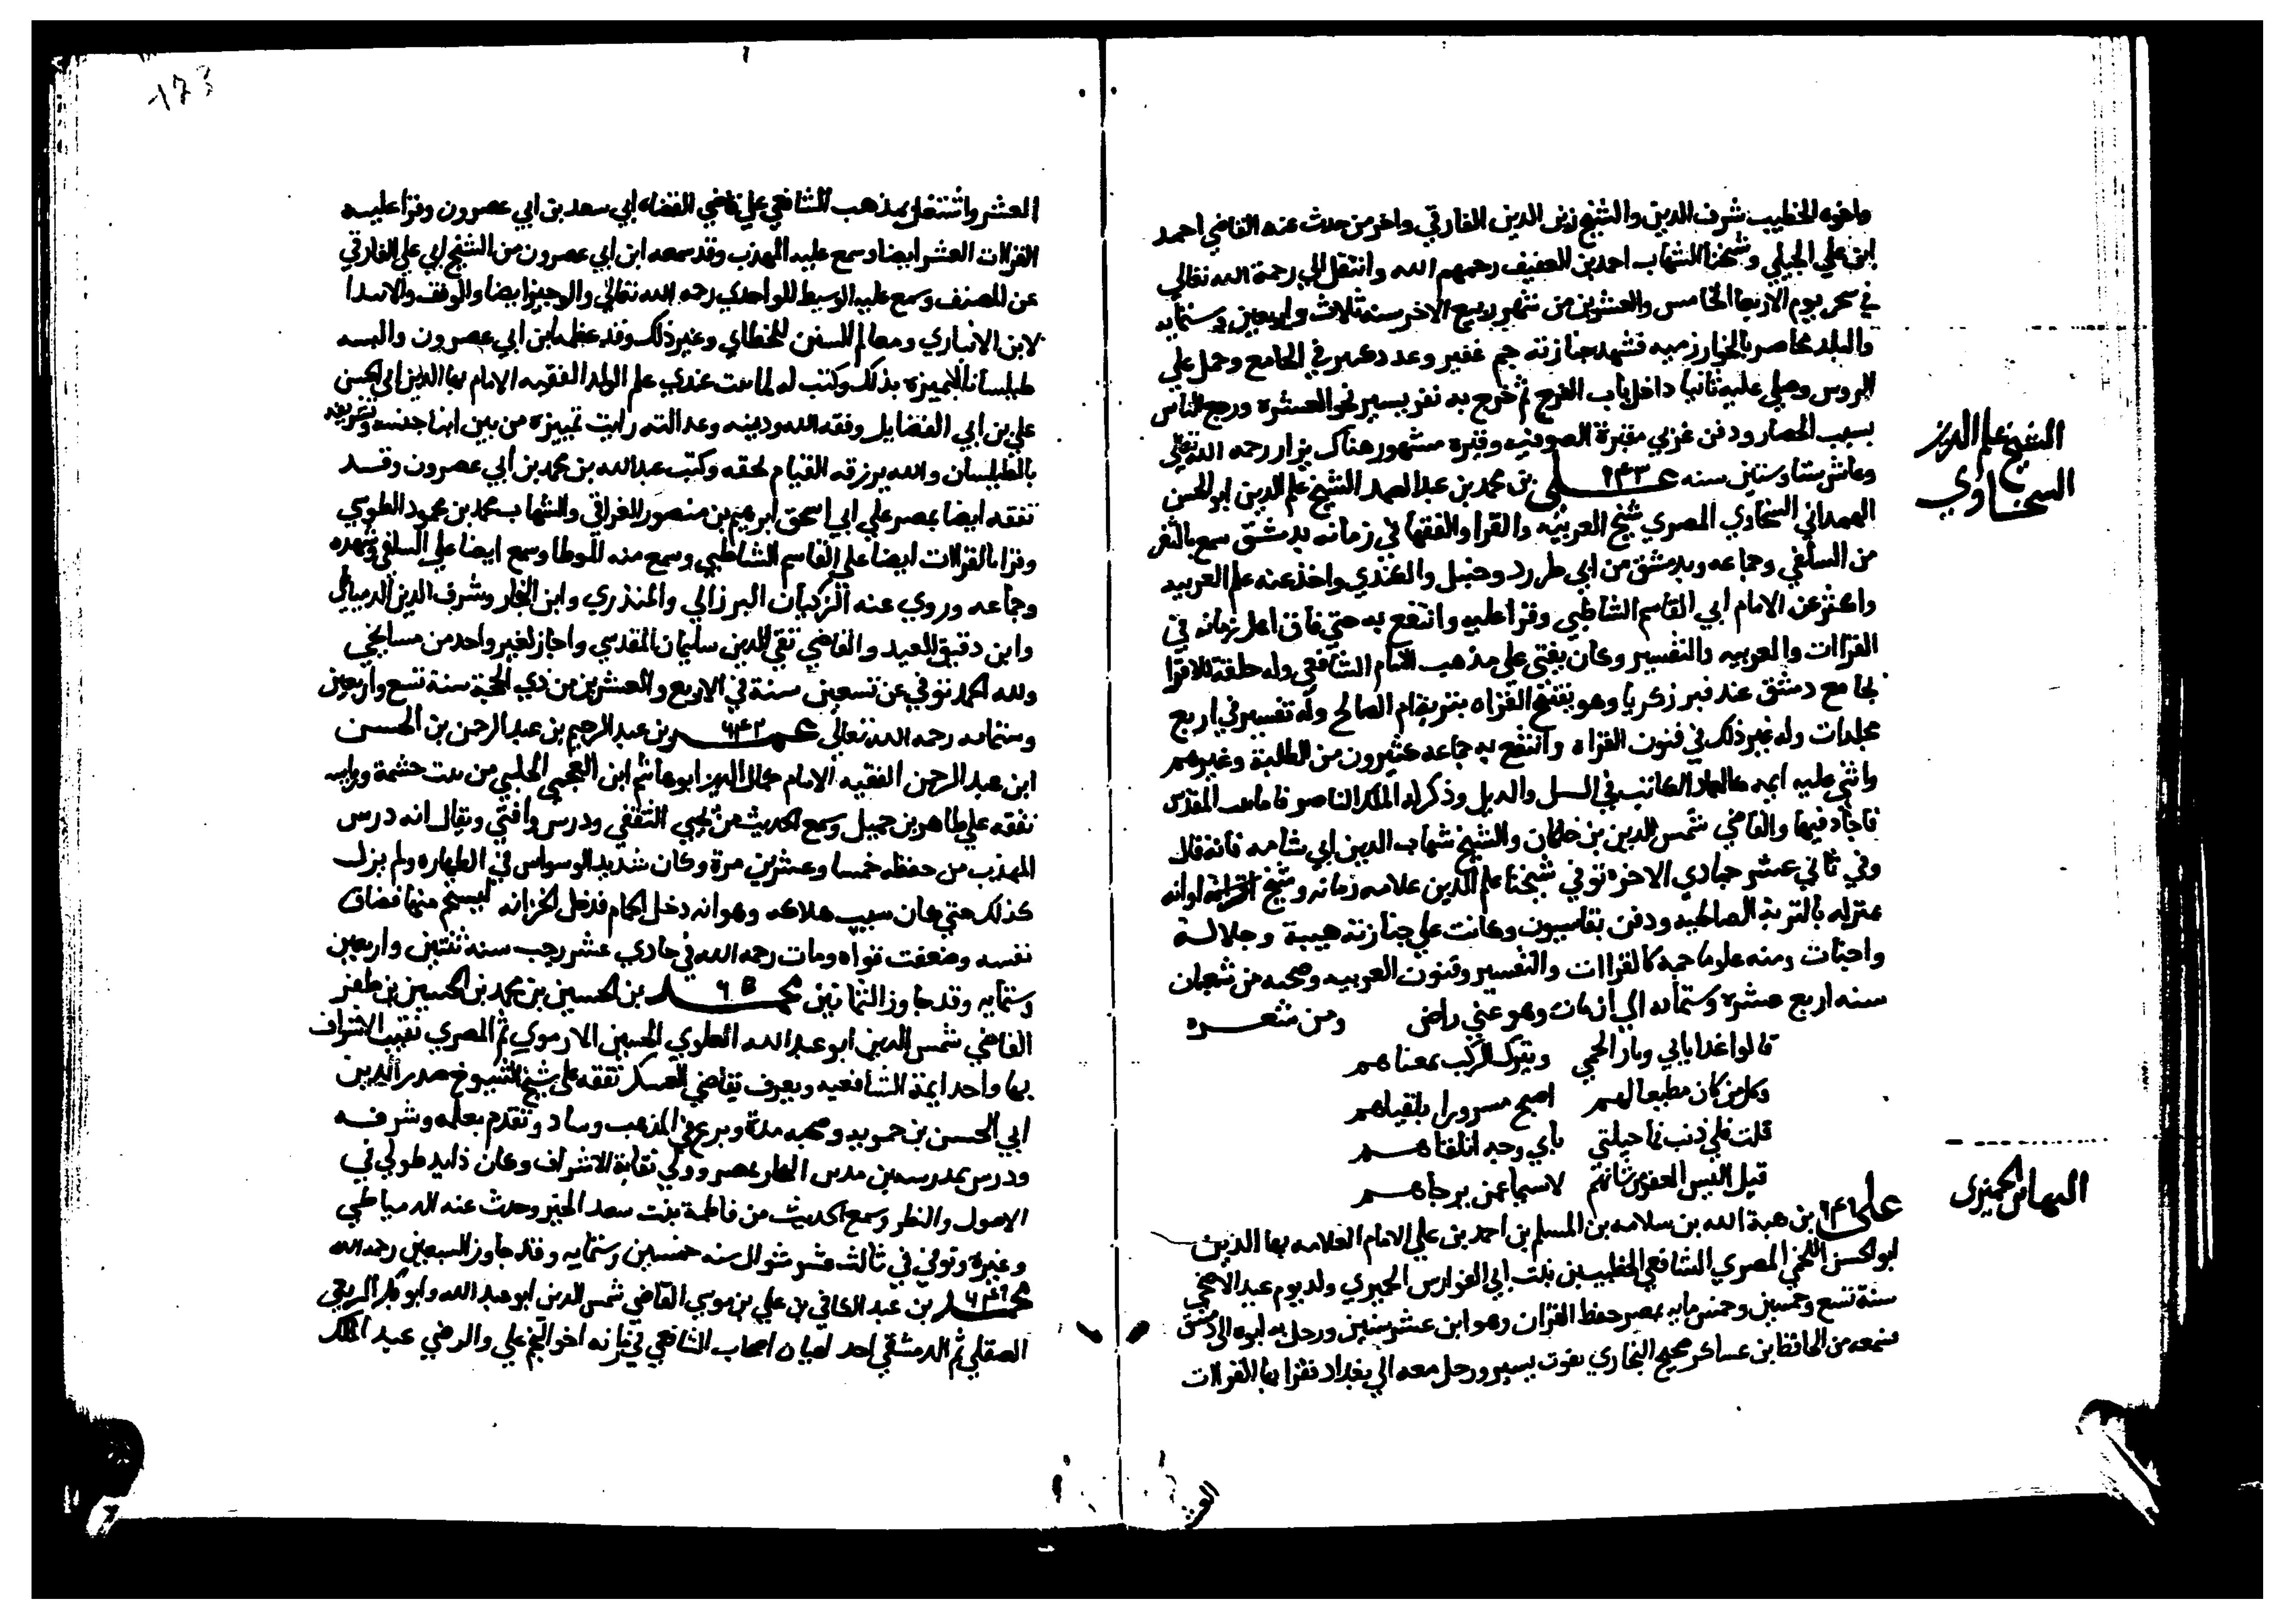 واخوه الخطيب شرف الدين والشيخ زين الدين الفارقي واخر من حدث عنه القاضي احمد
ابن علي الجيلي وشيخنا الشهاب احمد بن العفيف رحمهم الله وانتقل الي رحمة الله تعالي
في سحر يوم الاربعا الخامس والعشرين من شهر ربيع الاخر سنة ثلاث واربعين وستمايه
والبلد محاصر بالخوارزميه فشهد جنازته جم غفير وعدد كثير في الجامع وحمل علي
الروس وصلي عليه ثانيا داخل باب الفرج ثم خرج به نفر يسير نحو العشره ورجع الناس
بسبب الحصار ودفن غربي مقبرة الصوفيه وقبره مشهور هناك يزار رحمه الله تعالي
وعاش ستا وستين سنه علي ٦٤٣ بن محمد بن عبد الصمد الشيخ علم الدين ابو الحسن
الشيخ علم الدين
السخاوي
الهمداني السخاوي المصري شيخ العربيه والقرا والفقها في زمانه بدمشق سمع بالثغر
من السلفي وجماعه وبدمشق من ابن طبرزد وحنبل والكندي واخذ عنه علم العربيه
واكثر عن الامام ابي القاسم الشاطبي وقرا عليه وانتفع به حتي فاق اهل زمانه في
القراات والعربيه والتفسير وكان يفتي علي مذهب الامام الشافعي وله حلقة للاقرا
بجامع دمشق عند قبر زكريا وهو شيخ القراه بتربة ام الصالح وله تفسير في اربع
مجلدات وله غير ذلك في فنون القراه وانتفع به جماعه كثيرون من الطلبة وغيرهم
واثني عليه ايمه كالعماد الكاتب في السيل والذيل وذكر له الملك الناصر المقدس
فاجاد فيها والقاضي شمس الدين بن خلكان والشيخ شهاب الدين ابي شامه فانه قال
وفي ثاني عشر جمادي الاخره توفي شيخنا علم الدين علامه زمانه وشيخ اوانه
بمنزله بالتربة الصالحيه ودفن بقاسيون وكانت علي جنازته هيبة وجلالة
واخبات ومنه علوما جمة كالقراات والتفسير وفنون العربيه وصحبه من شعبان
سنه اربع عشره وستمايه الي ان مات وهو عني راض ومن شعره
قالوا غدا ياتي ديار الحمي وينزل الركب بمغناهم
وكل من كان مطيعا لهم اصبح مسرورا بلقياهم
قلت فلي ذنب فما حيلتي باي وجه اتلقاهم
قيل اليس العفو من شانهم لاسيما عمن يرجاهم
علي ٦٤٩ بن هبة الله بن سلامه بن المسلم بن احمد بن علي الامام العلامه بها الدين
البها بن الجميزي
ابو الحسن اللخمي المصري الشافعي الخطيب بن بنت ابي الفوارس الجميزي ولد يوم عيد الاضحي
سنة تسع وخمسين وخمس مايه بمصر حفظ القران وهو ابن عشر سنين ورحل به ابوه الي دمشق
فسمعه من الحافظ بن عساكر صحيح البخاري بفوت يسير ورحل معه الي بغداد فقرا بها القراات
العشر واشتغل بمذهب الشافعي علي قاضي القضاه ابي سعد بن ابي عصرون وقرا عليه
القراات العشر ايضا وسمع عليه المهذب وقد سمعه ابن ابي عصرون من الشيخ ابي علي الفارقي
عن المصنف وسمع عليه الوسيط للواحدي رحمه الله تعالي والوجيز ايضا والوقف والابتدا
لابن الانباري ومعالم السنن للخطابي وغير ذلك وقد عظمه ابن ابي عصرون والبسه
طيلسانا لتميزه بذلك وكتب له لما ثبت عندي علم الولد الفقيه الامام بها الدين ابي الحسن
علي بن ابي الفضايل وفقه الله ودينه وعدالته رايت تمييزه من بين ابنا جنسه وتشريفه
بالطيلسان والله يرزقه القيام بحقه وكتب عبد الله بن محمد بن ابي عصرون وقد
تفقه ايضا بمصر علي ابي اسحق ابرهيم بن منصور العراقي والشهاب محمد بن محمود الطوسي
وقرا بالقراات ايضا علي القاسم الشاطبي وسمع منه الموطا وسمع ايضا علي السلفي وشهده
وجماعه وروي عنه الزكيان البرزالي والمنذري وابن النجار وشرف الدين الدمياطي
وابن دقيق العيد والقاضي تقي الدين سليمان المقدسي واجاز لغير واحد من مشايخي
ولله الحمد توفي عن تسعين سنة في الاربع والعشرين من ذي الحجة سنة تسع واربعين
وستمايه رحمه الله تعالي ٦٤٢ بن عبد الرحيم بن عبد الرحمن بن الحسن
ابن عبد الرحمن الفقيه الامام كمال الدين ابو هاشم ابن العجمي الحلبي من بيت حشمة ورياسه
تفقه علي طاهر بن جميل وسمع الحديث من يحيي الثقفي ودرس وافتي ويقال انه درس
المهذب من حفظه خمسا وعشرين مرة وكان شديد الوسواس في الطهاره ولم يزل
كذلك حتي كان سبب هلاكه وهو انه دخل الحمام فدخل الخزانه ليستحم منها فضاق
نفسه وضعفت قواه ومات رحمه الله في حادي عشر رجب سنة ثنتين واربعين
وستمايه وقد جاوز الثمانين محمد بن الحسين بن محمد بن الحسين بن ظفر
القاضي شمس الدين ابو عبد الله العلوي الحسيني الارموي ثم المصري نقيب الاشراف
بها واحد ايمة الشافعيه ويعرف بقاضي العسكر تفقه علي شيخ الشيوخ صدر الدين
ابي الحسن بن حمويه وصحبه مدة وبرع في المذهب وساد وتقدم بعلمه وشرفه
ودرس بمدرسه بمصر وولي نقابة الاشراف وكان ذا يد طولي في
الاصول والنظر وسمع الحديث من فاطمة بنت سعد الخير وحدث عنه الدمياطي
وغيره وتوفي في ثالث عشر شوال سنه خمسين وستمايه وقد جاوز السبعين رحمه الله
محمد ٦٤٩ بن عبد الكافي بن علي بن موسي القاضي شمس الدين ابو عبد الله وابو بكر الربعي
الصقلي ثم الدمشقي احد اعيان اصحاب الشافعي في زمانه اخو النجم علي والرضي عبد الملك